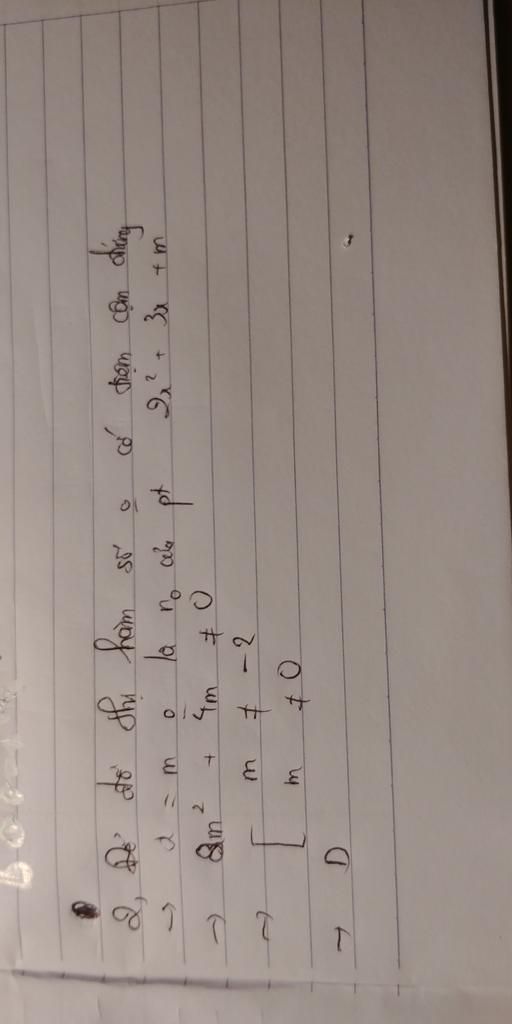 2, Để đồ thị hàm số o có tiệm cận đứng
→ x = m o là no của pt 2x² + 3x + m
→ 2m² + 4m ≠ 0
→ [ m ≠ -2
m ≠ 0
→ D